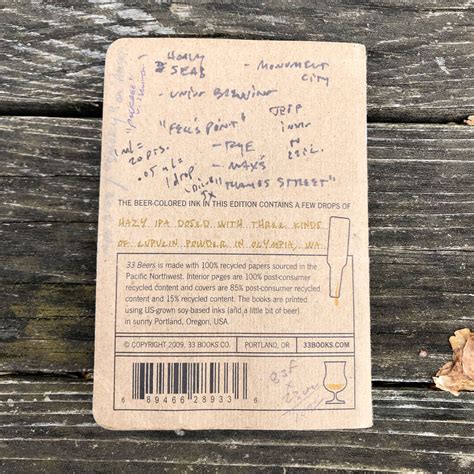 - HEAVY
SEAS
- MONUMENT
CITY
- UNION BREWING
"FELL'S POINT"
JEFF
1 mL =
20 pts.
- RYE
.05 mL =
1 drop
- MAX'S
"THAMES STREET"
THE BEER-COLORED INK IN THIS EDITION CONTAINS A FEW DROPS OF
HAZY IPA DOSED WITH THREE KINDS
OF LUPULIN POWDER IN OLYMPIA, WA.
33 Beers is made with 100% recycled papers sourced in the
Pacific Northwest. Interior pages are 100% post-consumer
recycled content and covers are 85% post-consumer recycled
content and 15% recycled content. The books are printed
using US-grown soy-based inks (and a little bit of beer)
in sunny Portland, Oregon, USA.
© COPYRIGHT 2009, 33 BOOKS CO. PORTLAND, OR 33BOOKS.COM
6 89466 28933 6